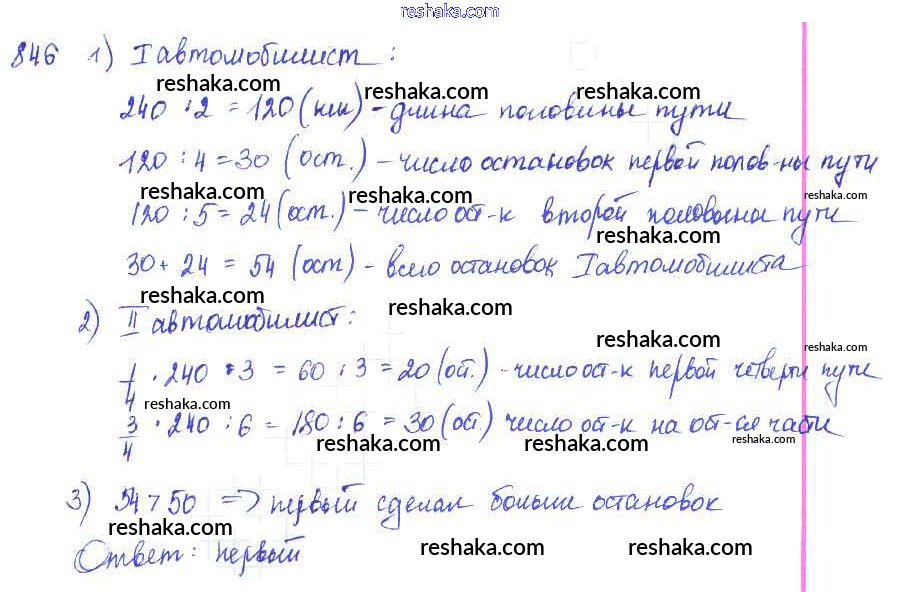 reshaka.com
846 1) I автомобилист:
reshaka.com reshaka.com reshaka.com
240 : 2 = 120 (км) - длина половины пути
reshaka.com
120 : 4 = 30 (ост.) - число остановок первой полов-ны пути
reshaka.com reshaka.com reshaka.com
120 : 5 = 24 (ост.) - число ост-к второй половины пути
reshaka.com
30 + 24 = 54 (ост) - всего остановок I автомобилиста
reshaka.com reshaka.com
2) II автомобилист:
reshaka.com reshaka.com
1/4 · 240 : 3 = 60 : 3 = 20 (ост.) - число ост-к первой четверти пути
reshaka.com
3/4 · 240 : 6 = 180 : 6 = 30 (ост.) число ост-к на ост-ся части
reshaka.com reshaka.com reshaka.com
3) 54 > 50 => первый сделал больше остановок
reshaka.com
Ответ: первый
reshaka.com reshaka.com